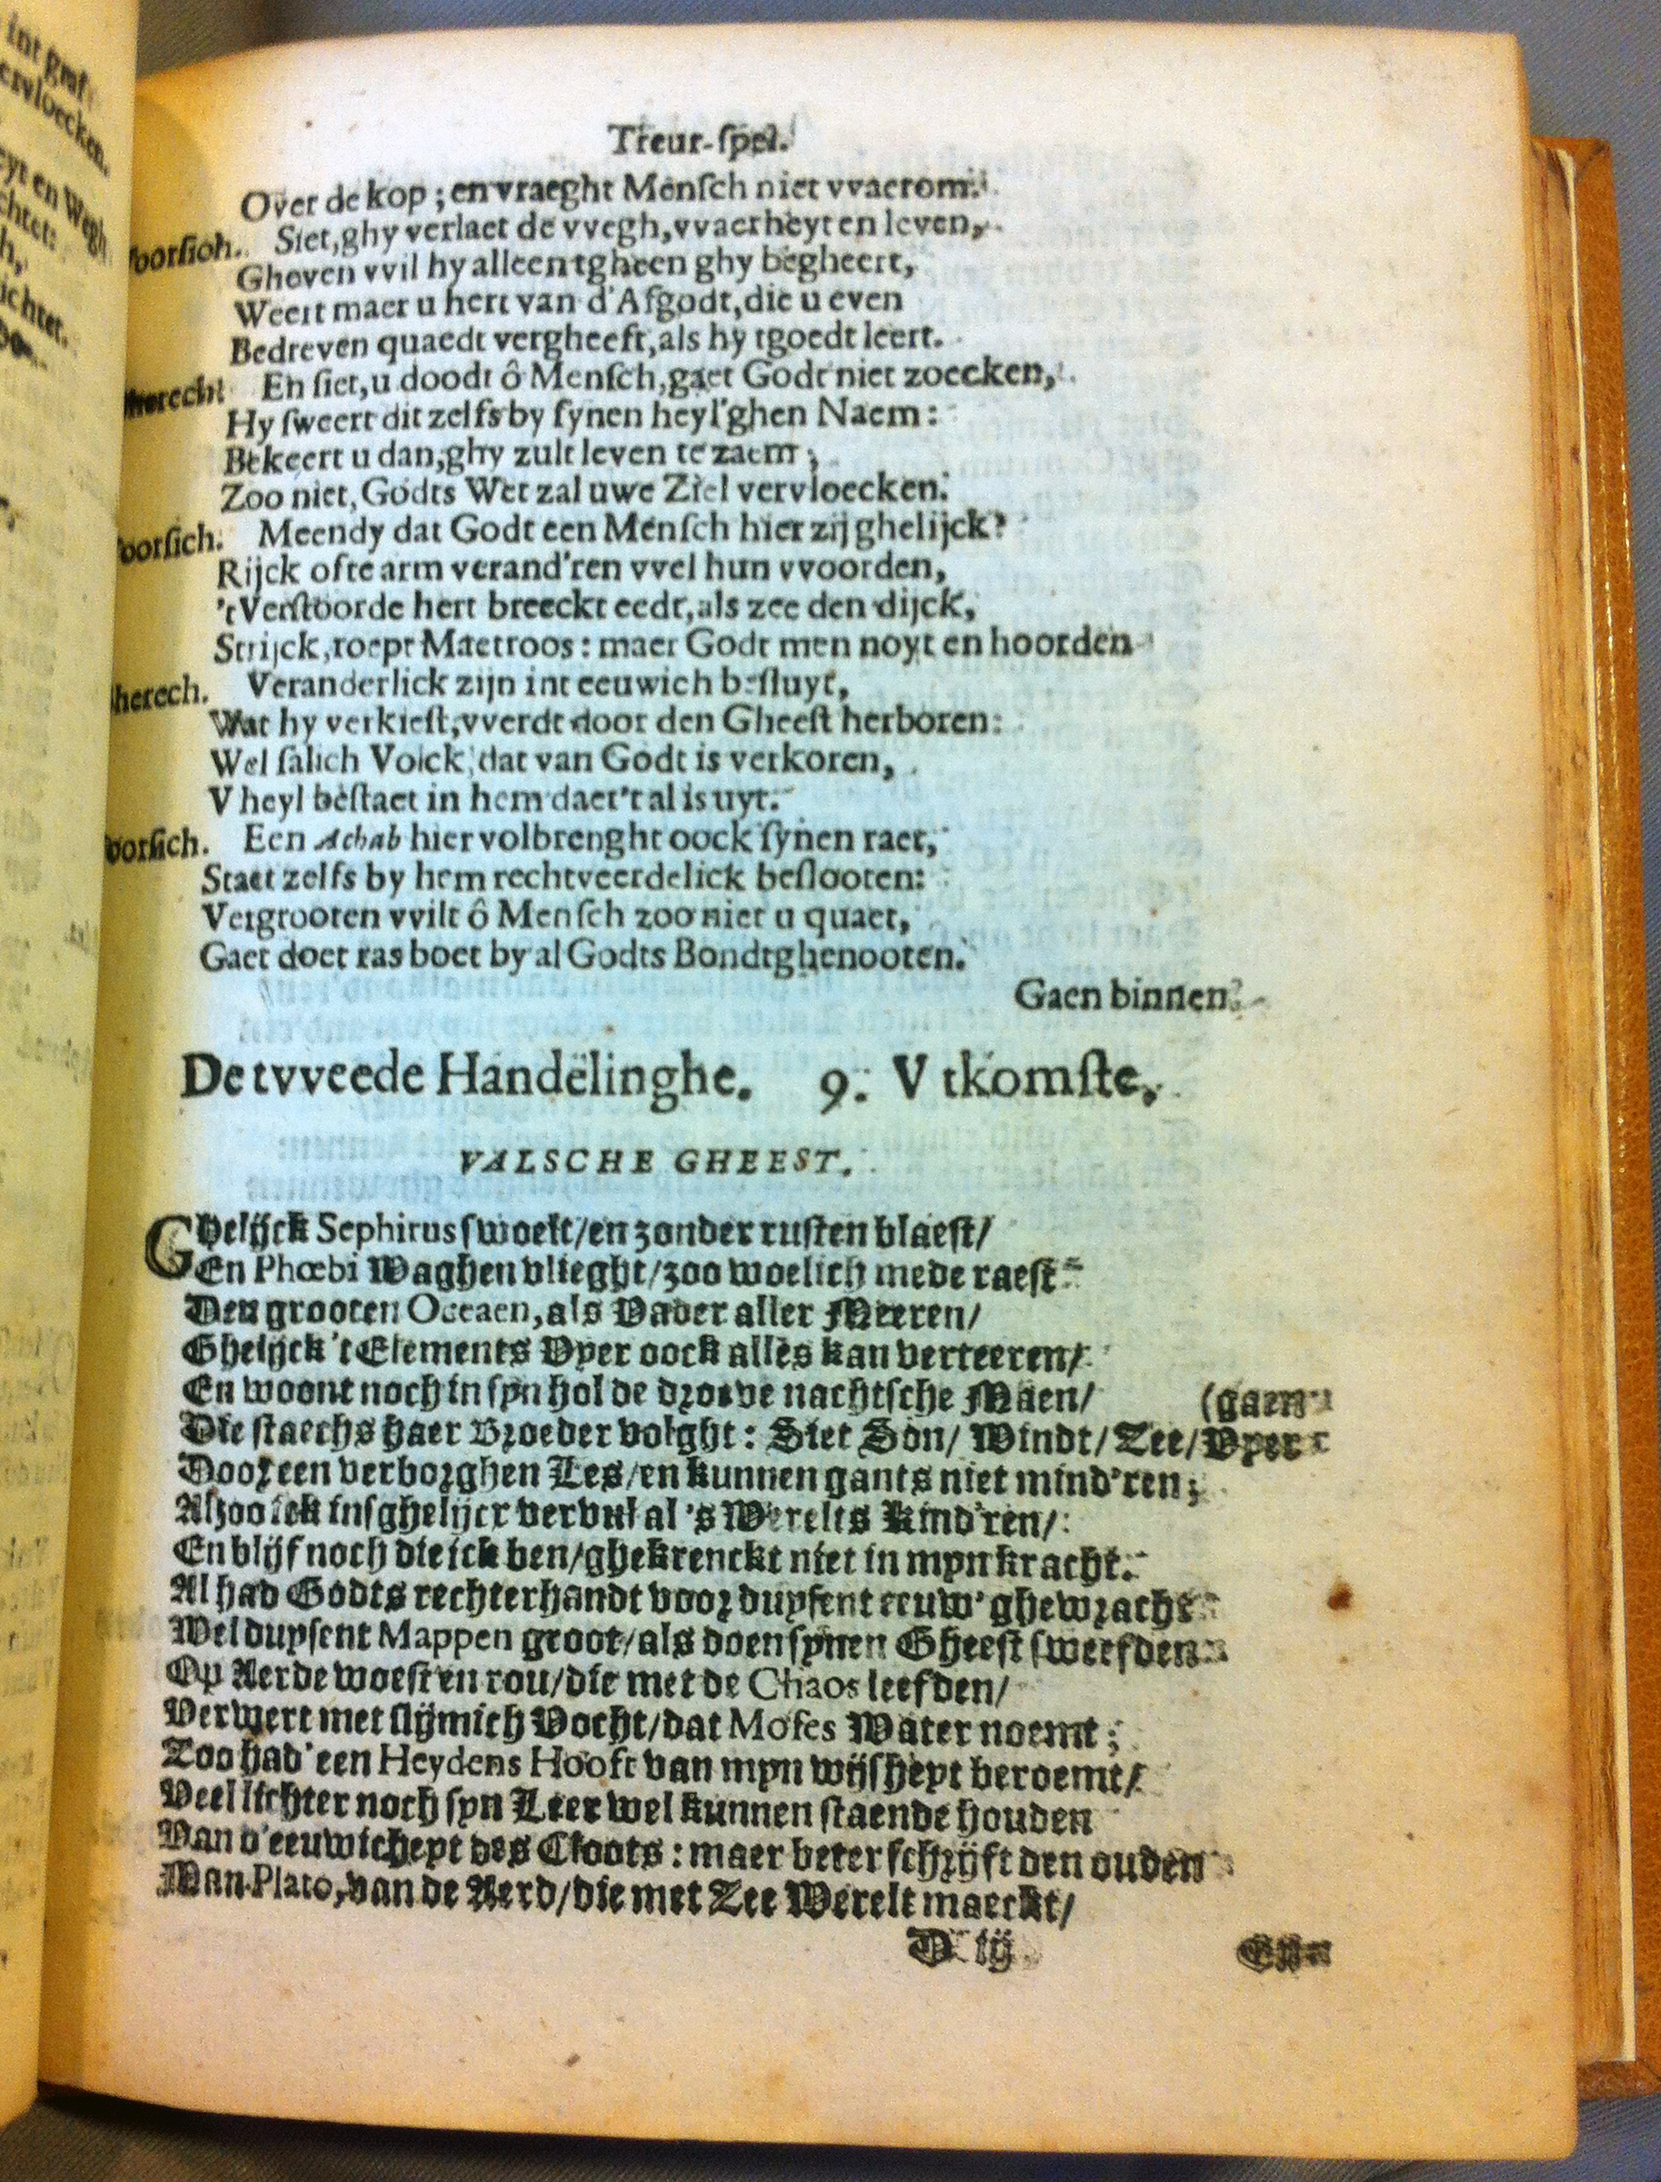 int graf
ervloecken.
eyt en Wegh
chtet:
Treur-ſpel.
Over de kop; en vraeght Menſch niet vvaerom.
Voorſich. Siet, ghy verlaet de vvegh, vvaerheyt en leven,
Gheven vvil hy alleen tgheen ghy begheert,
Weert maer u hert van d'Afgodt, die u even
Bedreven quaedt vergheeft, als hy tgoedt leert.
Gherecht En ſiet, u doodt ô Menſch, gaet Godt niet zoecken,
Hy ſweert dit zelfs by ſynen heyl'ghen Naem:
Bekeert u dan, ghy zult leven te zaem;
Zoo niet, Godts Wet zal uwe Ziel vervloecken.
Voorſich. Meendy dat Godt een Menſch hier zij ghelijck?
Rijck ofte arm verand'ren vvel hun vvoorden,
't Verſtoorde hert breeckt eedt, als zee den dijck,
Strijck, roept Maetroos: maer Godt men noyt en hoorden
Gherech. Veranderlick zijn int eeuwich beſluyt,
Wat hy verkieſt, vverdt door den Gheeſt herboren:
Wel ſalich Volck, dat van Godt is verkoren,
V heyl beſtaet in hem daer't al is uyt.
Voorſich. Een Achab hier volbrenght oock ſynen raet,
Staet zelfs by hem rechtveerdelick beſlooten:
Vergrooten vvilt ô Menſch zoo niet u quaet,
Gaet doet ras boet by al Godts Bondtghenooten.
Gaen binnen.
De tvveede Handelinghe. 9. Vtkomſte.
VALSCHE GHEEST.
Ghelijck Sephirus ſwoelt/ en zonder ruſten blaeſt/
En Phœbi Waghen vlieght/ zoo woelich mede raeſt
Den grooten Oceaen, als Vader aller Meeren/
Ghelijck 't Elements Vyer oock alles kan verteeren/
En woont noch in ſyn hol de droeve nachtſche Maen/ (gaen
Die ſtaechs haer Broeder volght: Siet Son/ Windt/ Zee/ Vyer
Door een verborghen Les/ en kunnen gants niet mind'ren;
Alzoo ick inſghelijcx vervul al 's Werelts kind'ren/
En blijf noch die ick ben/ ghekrenckt niet in myn kracht.
Al had Godts rechterhandt voor duyſent eeuw' ghewracht
Wel duyſent Mappen groot/ als doen ſynen Gheeſt ſweefden
Op Aerde woeſt en rou/ die met de Chaos leefden/
Verwert met ſlijmich Vocht/ dat Moſes Water noemt;
Zoo had' een Heydens Hooft van myn wijſheyt beroemt/
Veel lichter noch ſyn Leer wel kunnen ſtaende houden
Van d'eeuwicheyt des Cloots: maer beter ſchrijft den ouden
Man Plato, van de Aerd/ die met Zee Werelt maeckt/
D iij En